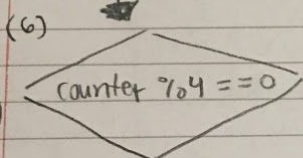 (6)
counter %4 == 0